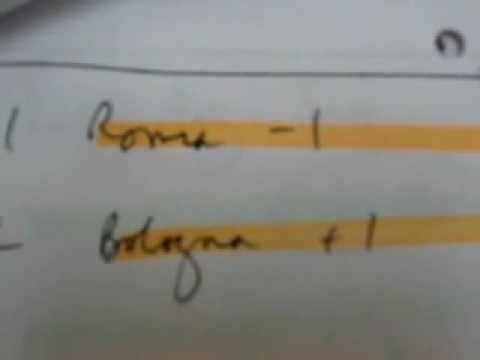 1 Roma -1
Bologna +1